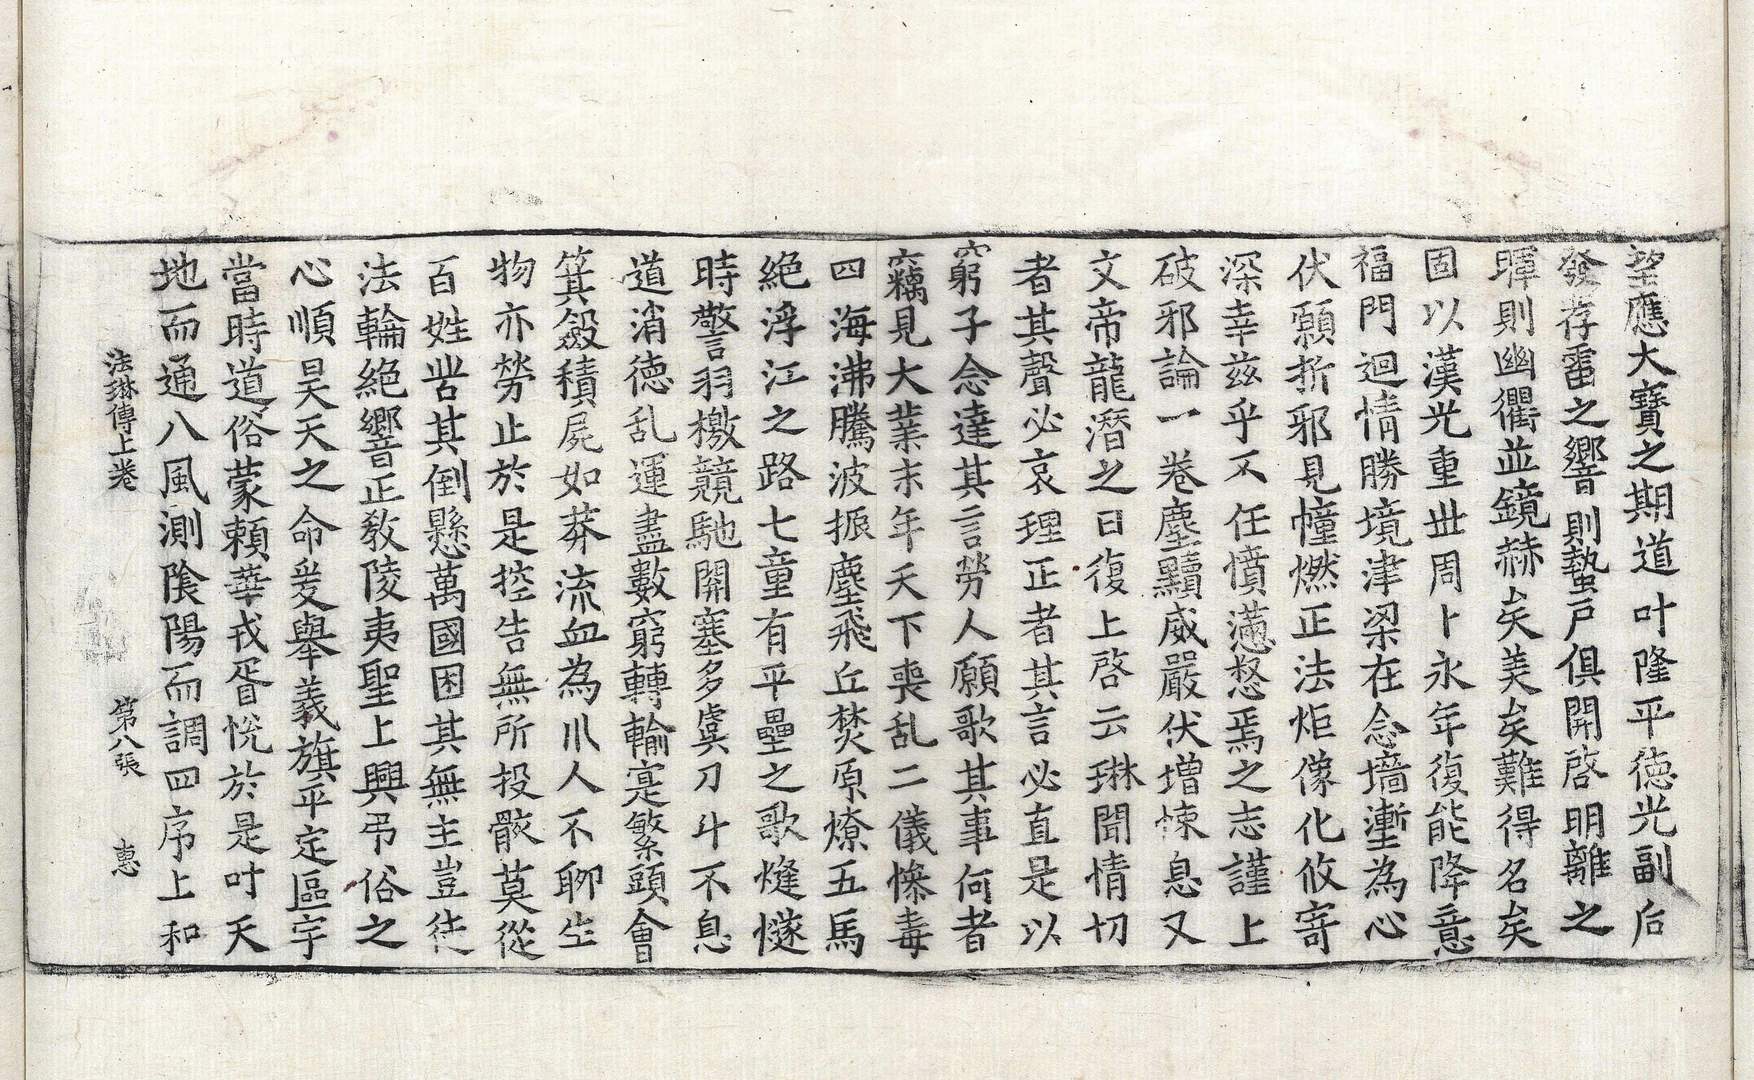 望應大寶之期道叶隆平徳光副后
發存雷之響則蟄戸俱開啓明離之
暉則幽衢並鏡赫矣美矣難得名矣
固以漢光重丗周卜永年復能降意
福門迴情勝境津梁在念墻壍為心
伏願折邪見幢燃正法炬像化攸寄
深幸兹乎不任憤懣愁焉之志謹上
破邪論一卷塵黷威嚴伏增悚息又
文帝龍潛之日復上啓云琳聞情切
者其聲必哀理正者其言必直是以
窮子念達其言勞人願歌其事何者
竊見大業末年天下喪乱二儀慘毒
四海沸騰波振塵飛丘焚原燎五馬
絶浮江之路七童有平壘之歌烽燧
時警羽檄競馳關塞多虞刀斗不息
道消徳乱運盡數窮轉輸寔繁頭會
箕斂積屍如莽流血為川人不聊生
物亦勞止於是控告無所投骸莫從
百姓苦其倒懸萬國困其無主豈徒
法輪絶響正教陵夷聖上興弔俗之
心順昊天之命爰舉義旗平定區宇
當時道俗蒙賴華戎胥悅於是叶天
地而通八風測陰陽而調四序上和
法琳傳上卷 第八張 惠